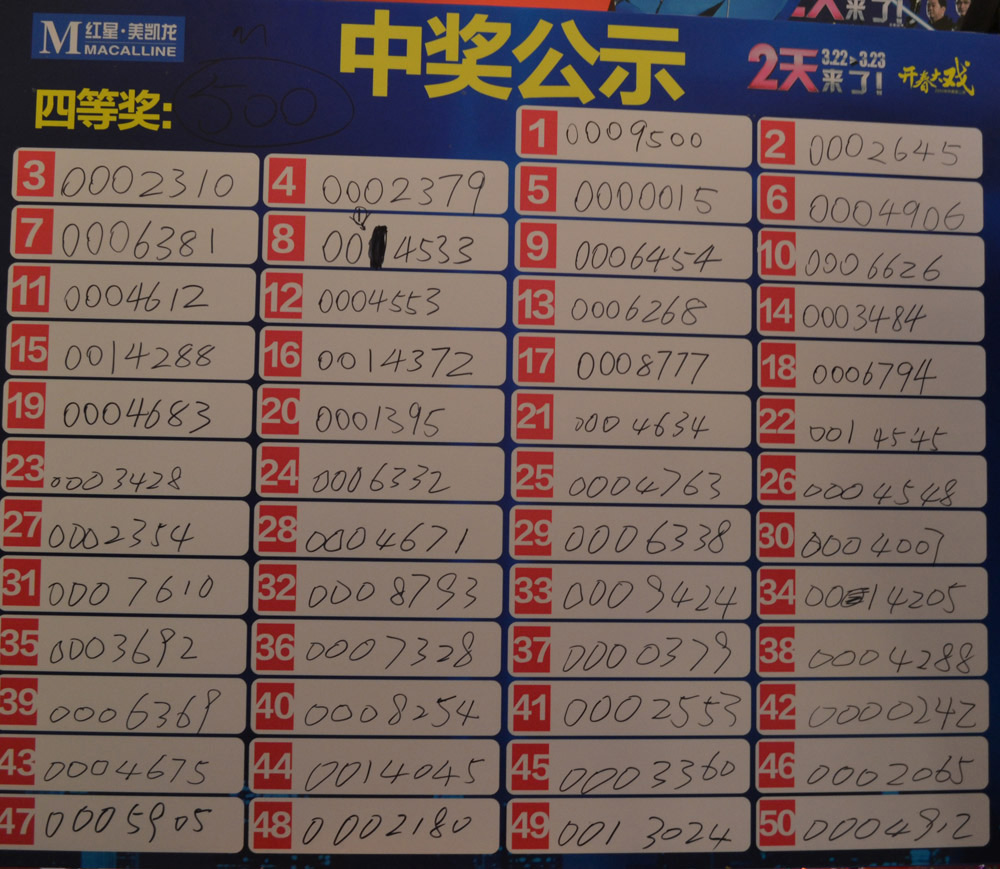 M 红星·美凯龙
MACALLINE
中奖公示
2天来了!
3.22▸3.23
开春大戏
四等奖:
1 0009500
2 0002645
3 0002310
4 0002379
5 0000015
6 0004906
7 0006381
8 0014533
9 0006454
10 0006626
11 0004612
12 0004553
13 0006268
14 0003484
15 0014288
16 0014372
17 0008777
18 0006794
19 0004683
20 0001395
21 0004634
22 0014545
23 0003428
24 0006332
25 0004763
26 0004548
27 0002354
28 0004671
29 0006338
30 0004007
31 0007610
32 0008793
33 0009424
34 0014205
35 0003692
36 0007328
37 0000379
38 0004288
39 0006369
40 0008254
41 0002553
42 0000242
43 0004675
44 0014045
45 0003360
46 0002065
47 0005905
48 0002180
49 0013024
50 0004912